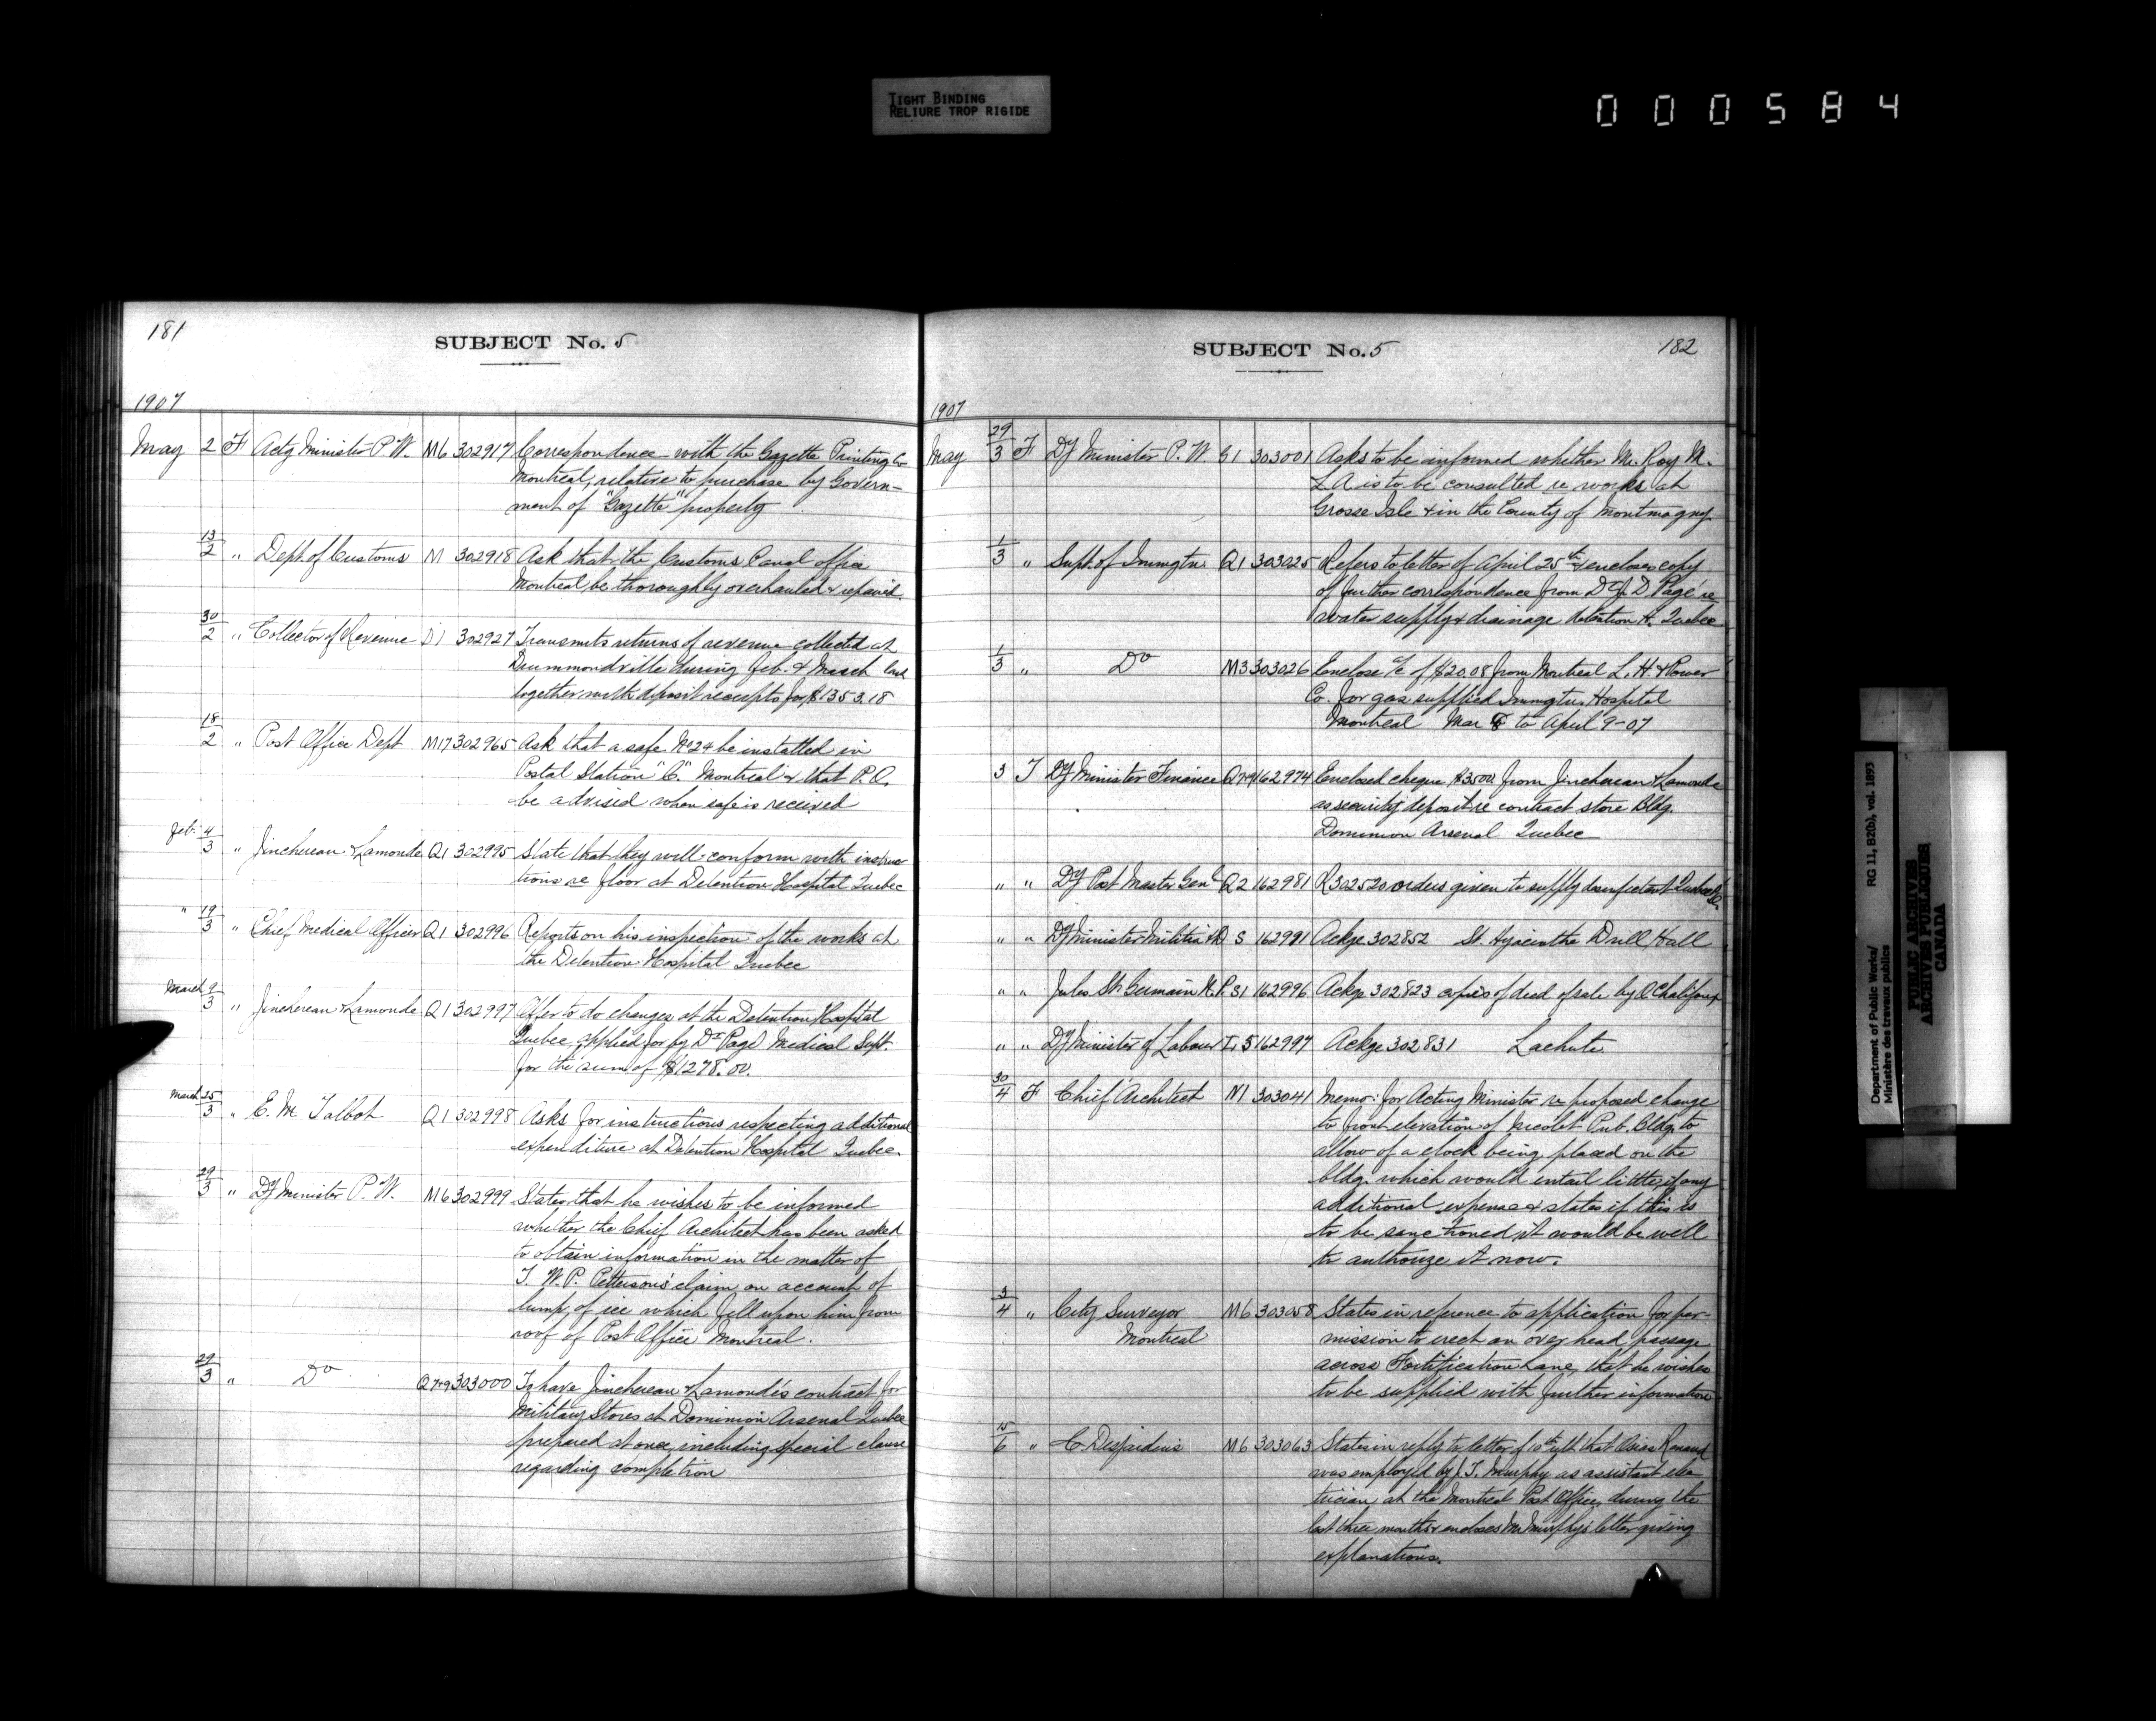 TIGHT BINDING
RELIURE TROP RIGIDE
000584
181
SUBJECT No. 5
1907
May 2 F Actg Minister P.W. M6 302917 Correspondence with the Gazette Printing Co
Montreal, relative to purchase by Govern-
ment of "Gazette" property
13/2 " Dept. of Customs M 302918 Ask that the Customs Canal office
Montreal be thoroughly overhauled & repaired.
30/2 " Collector of Revenue D1 302927 Transmits returns of revenue collected at
Drummondville during Feb. & March last
together with deposit receipts for $1353.18
18/2 " Post Office Dept M17 302965 Ask that a safe No 24 be installed in
Postal Station "C" Montreal & that P.O.
be advised when safe is received
Feb. 4/3 " Jinchereau & Lamonde Q1 302995 State that they will conform with instruc
tions re floor at Detention Hospital Quebec
" 19/3 " Chief Medical Officer Q1 302996 Reports on his inspection of the works at
the Detention Hospital Quebec
March 9/3 " Jinchereau & Lamonde Q1 302997 Offer to do changes at the Detention Hospital
Quebec, applied for by Dr Page Medical Supt.
for the sum of $1278.00.
March 25/3 " E. M. Talbot Q1 302998 Asks for instructions respecting additional
expenditure at Detention Hospital Quebec.
29/3 " Dy Minister P.W. M6 302999 States that he wishes to be informed
whether the Chief Architect has been asked
to obtain information in the matter of
T. W. P. Petterson's claim on account of
lump of ice which fell upon him from
roof of Post Office Montreal.
29/3 " Do Q7-9 303000 To have Jinchereau & Lamonde's contract for
Military Stores at Dominion Arsenal Quebec
prepared at once, including special clause
regarding completion
SUBJECT No. 5
182
1907
May 29/3 F Dy Minister P.W. G1 303001 Asks to be informed whether Mr. Roy M.
L A is to be consulted re works at
Grosse Isle & in the County of Montmagny
1/3 " Supt. of Immgtn Q1 303025 Refers to letter of April 25th & encloses copy
of further correspondence from Dr J. D Page re
water supply & drainage detention H. Quebec
1/3 " Do M3 303026 Enclose a/c of $20.08 from Montreal L. H. & Power
Co. for gas supplied Immgtn. Hospital
Montreal Mar 8 to April 9-07
3 T Dy Minister Finance Q7-9 162974 Enclosed cheque $3500 from Jinchereau & Lamonde
as security deposit re contract store Bldg.
Dominion Arsenal Quebec
" " Dy Post Master Genl Q2 162981 R 302520 orders given to supply disinfectant Quebec
" " Dy Minister Militia & D S 162991 Ackge 302852 St. Hyacinthe Drill Hall
" " Jules St. Germain N.P. S1 162996 Ackge 302823 copies of deed of sale by O Chalifoux
" " Dy Minister of Labour L 5 162997 Ackge 302831 Lachute.
30/4 F Chief Architect N1 303041 Memo. for Acting Minister re proposed change
to front elevation of Nicolet Pub. Bldg. to
allow of a clock being placed on the
bldg. which would entail little, if any
additional expense & states if this is
to be sanctioned it would be well
to authorize it now.
3/4 " City Surveyor M6 303058 States in reference to application for per-
Montreal mission to erect an over head passage
across Fortification Lane, that he wishes
to be supplied with further information
15/6 " C. Desjardins M6 303063 States in reply to letter of 10th ult. that Osias Renaud
was employed by J. T. Murphy as assistant elec
trician at the Montreal Post Office, during the
last three months & encloses Mr Murphy's letter giving
explanations.
Department of Public Works/
Ministère des travaux publics
RG 11, B2(b), vol. 1893
PUBLIC ARCHIVES
ARCHIVES PUBLIQUES
CANADA